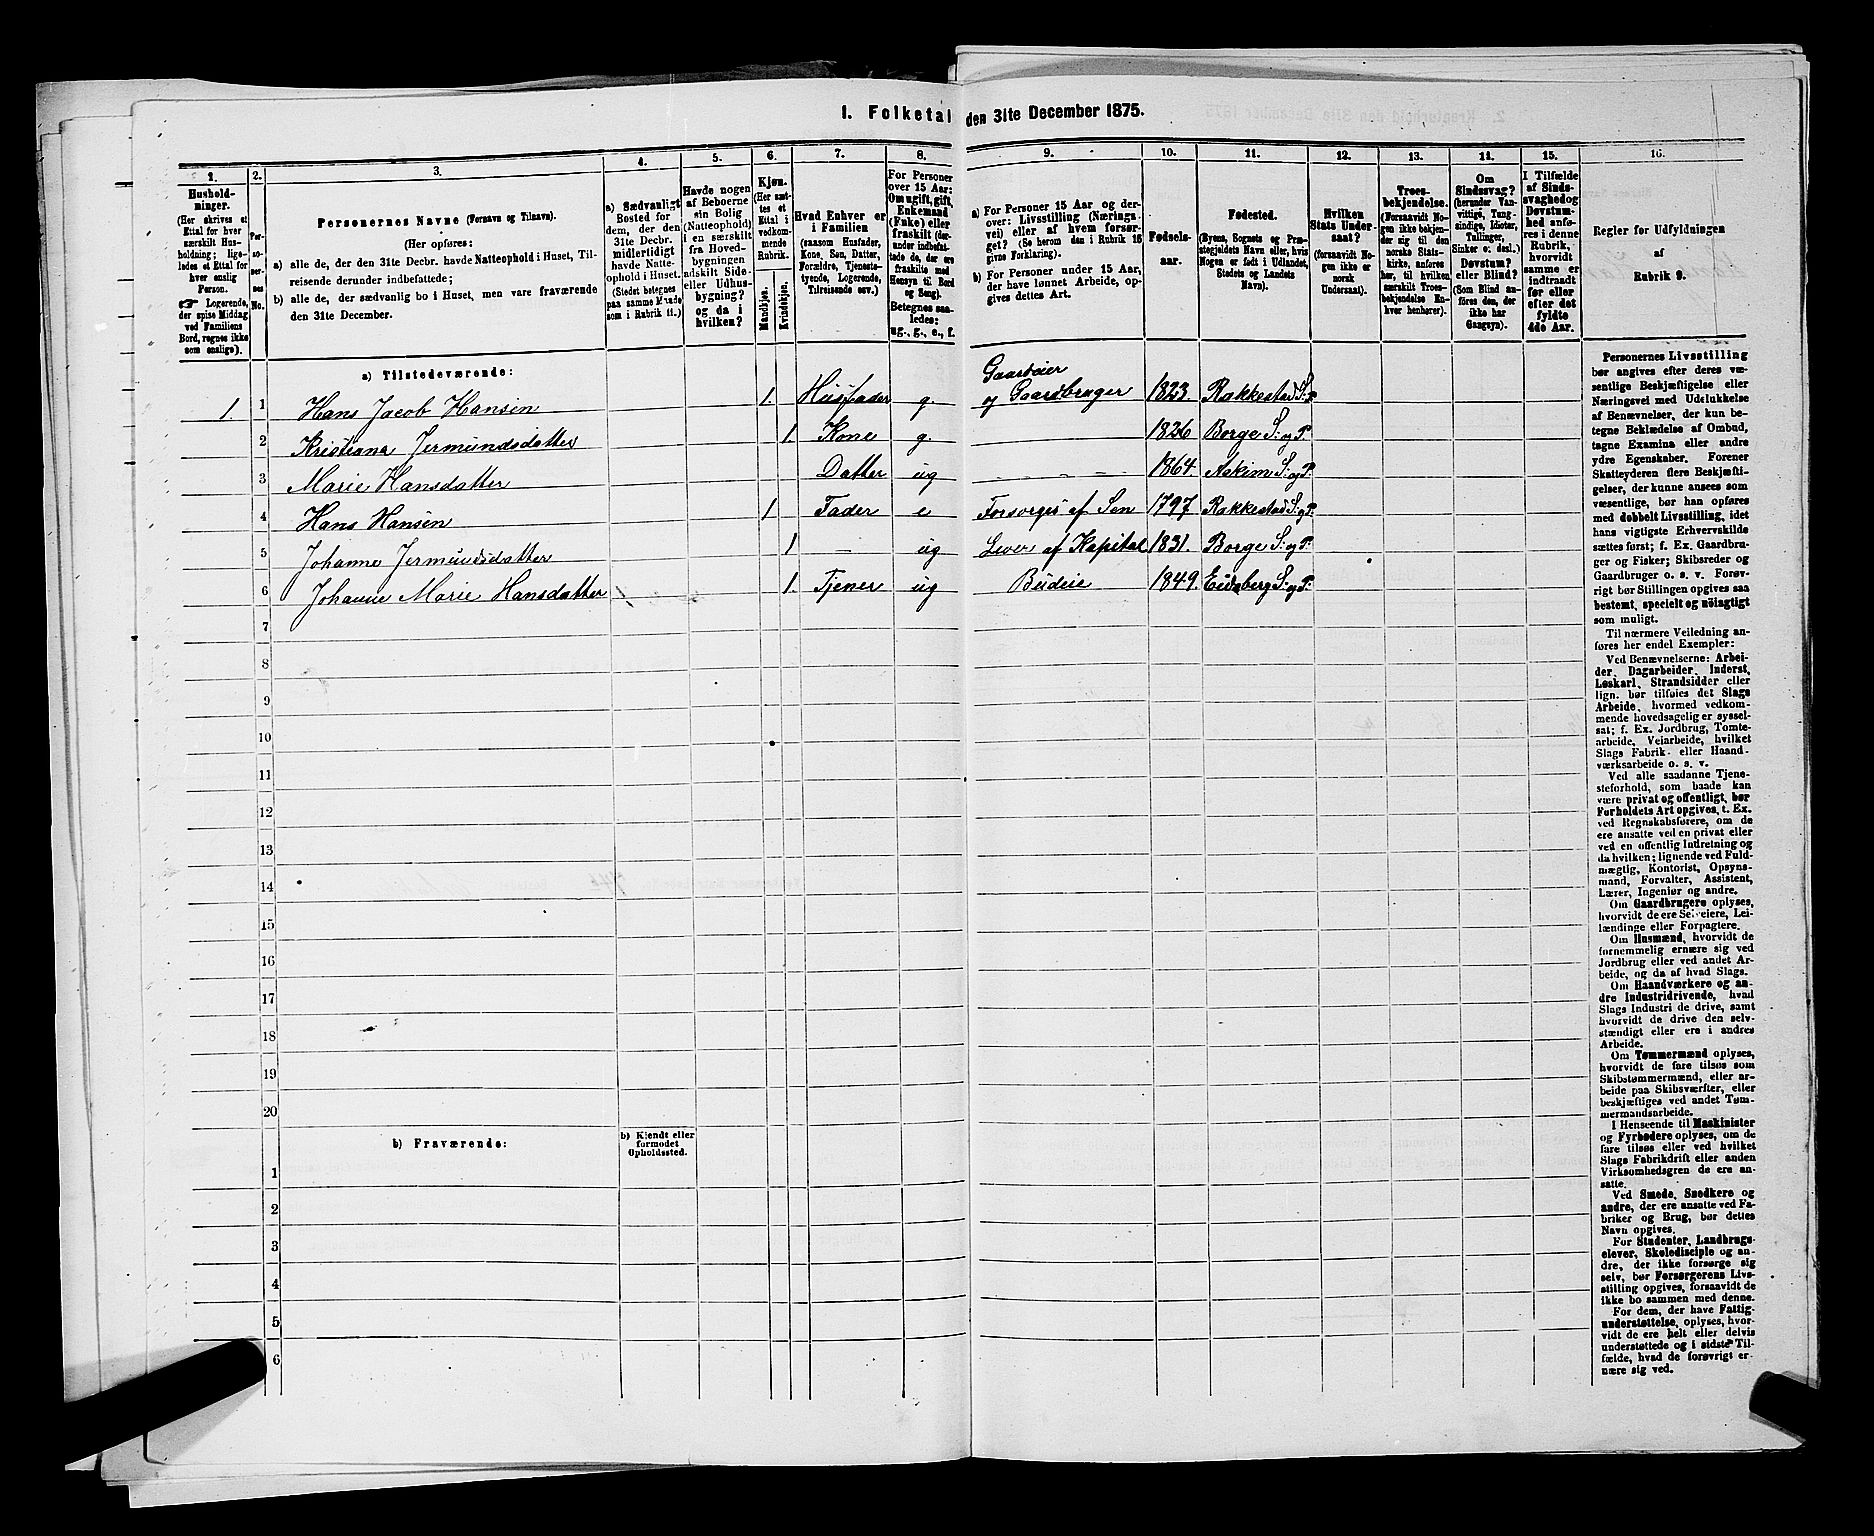 I. Folketal den 31te December 1875.
1. 2. 3. 4. 5. 6. 7. 8. 9. 10. 11. 12. 13. 14. 15. 16.
Hushold-
ninger.
(Her skrives et
Ettal for hver
særskilt Hus-
holdning; lige-
ledes et Ettal for
hver enslig
Person.
☛ Logerende,
der spise Middag
ved Familiens
Bord, regnes ikke
som enslige).
Per-
so-
ner-
nes
No.
Personernes Navne (Fornavn og Tilnavn).
(Her opføres:
a) alle de, der den 31te Decbr. havde Natteophold i Huset, Til-
reisende derunder indbefattede;
b) alle de, der sædvanlig bo i Huset, men vare fraværende
den 31te December.
a) Sædvanligt
Bosted for
dem, der den
31te Decbr.
midlertidigt
havde Natte-
ophold i Huset.
(Stedet betegnes
paa samme Maade
som i Rubrik 11.)
Havde nogen
af Beboerne
sin Bolig
(Natteophold)
i en særskilt
fra Hoved-
bygningen
adskilt Side-
eller Udhus-
bygning?
og da i
hvilken?
Kjøn.
(Her sæt-
tes et
Ettal i
vedkom-
mende
Rubrik.
Mandkjøn.
Kvindekjøn.
Hvad Enhver er
i Familien
(saasom Husfader,
Kone, Søn, Datter,
Forældre, Tjeneste-
tyende, Logerende,
Tilreisende osv.)
For Personer
over 15 Aar:
Om ugift, gift,
Enkemand
(Enke) eller
fraskilt (der-
under indbefat-
tede de, der ere
fraskilte med
Hensyn til Bord
og Seng).
Betegnes saa-
ledes:
ug., g., e., f.
a) For Personer 15 Aar og der-
over: Livsstilling (Nærings-
vei) eller af hvem forsør-
get? (Se herom den i Rubrik 16
givne Forklaring).
b) For Personer under 15 Aar,
der have lønnet Arbeide, op-
gives dettes Art.
Fødsels-
aar.
Fødested.
(Byens, Sognets og Præ-
stegjeldets Navn eller, hvis
Nogen er født i Udlandet,
Stedets og Landets
Navn).
Hvilken
Stats Under-
saat?
(forsaavidt No-
gen ikke er
norsk
Undersaat).
Troes-
bekjendelse.
(Forsaavidt No-
gen ikke bekjen-
der sig til den
norske Stats-
kirke, anføres
her, til hvilken
særskilt Troes-
bekjendelse En-
hver henhører).
Om
Sindssvag?
(herunder Van-
vittige, Tung-
sindige, Idioter,
Tullinger,
Sinker o. desl.).
Døvstum?
eller Blind?
(Som Blind an-
føres den, der
ikke har
Gangsyn).
I Tilfælde
af Sinds-
svaghed og
Døvstum-
hed anfø-
res i denne
Rubrik,
hvorvidt
samme er
indtraadt
før eller
efter det
fyldte
4de Aar.
Regler for Udfyldningen
af
Rubrik 9.
a) Tilstedeværende:
Gaardeier
1 1 Hans Jacob Hansen 1. Husfader g og Gaardbruger 1823. Rakkestad S: og P
2 Kristiana Jermundsdatter 1. Kone g. 1826 Borge S: og P:
3 Marie Hansdatter Datter ug - - - 1864. Askim S: og P:
4 Hans Hansen 1 Fader e Forsørges af Søn 1797. Rakkestad S: og P:
5 Johanne Jermundsdatter 1 - ug Lever af Kapital 1831. Borge S: og P:
6 Johanne Marie Hansdatter 1. Tjener ug Budeie 1849. Eidsberg S: og P:
7
8
9
10
11
12
13
14
15
16
17
18
19
20
b) Fraværende:
b) Kjendt eller
formodet
Opholdssted.
1
2
3
4
5
6
Personernes Livsstilling
bør angives efter deres væ-
sentlige Beskjæftigelse eller
Næringsvei med Udelukkelse
af Benævnelser, der kun be-
tegne Beklædelse af Ombud,
tagne Examina eller andre
ydre Egenskaber. Forener
Skatteyderen flere Beskjæfti-
gelser, der kunne ansees som
væsentlige, bør han opføres
med dobbelt Livsstilling, idet
hans vigtigste Erhvervskilde
sættes først; f. Ex. Gaardbru-
ger og Fisker; Skibsreder og
Gaardbruger o. s. v. Forøv-
rigt bør Stillingen opgives saa
bestemt, specielt og nöiagtigt
som muligt.
Til nærmere Veiledning an-
føres her endel Exempler:
Ved Benævnelserne: Arbei-
der, Dagarbeider, Inderst,
Løskarl, Strandsidder eller
lign. bør tilføies det Slags
Arbeide, hvormed vedkom-
mende hovedsagelig er syssel-
sat; f. Ex. Jordbrug, Tomte-
arbeide, Veiarbeide, hvilket
Slags Fabrik- eller Haand-
værksarbeide o. s. v.
Ved alle saadanne Tjene-
steforhold, som baade kan
være privat og offentligt, bør
Forholdets Art opgives, t. Ex.
ved Regnskabsførere, om de
ere ansatte ved en privat eller
ved en offentlig Indretning og
da hvilken; lignende ved Fuld-
mægtig, Kontorist, Opsyns-
mand, Forvalter, Assistent,
Lærer, Ingeniør og andre.
Om Gaardbrugere oplyses,
hvorvidt de ere Selveiere, Lei-
lændinge eller Forpagtere.
Om Husmænd, hvorvidt de
fornemmelig ernære sig ved
Jordbrug eller ved andet Ar-
beide, og da af hvad Slags.
Om Haandværkere og an-
dre Industridrivende, hvad
Slags Industri de drive, samt
hvorvidt de drive den selv-
stændigt eller ere i andres
Arbeide.
Om Tømmermænd oplyses,
hvorvidt de fare tilsøs som
Skibstømmermænd, eller ar-
beide paa Skibsværfter, eller
beskjæftiges ved andet Tøm-
mermandsarbeide.
I Henseende til Maskinister
og Fyrbødere oplyses, om de
fare tilsøs eller ved hvilket
Slags Fabrikdrift eller anden
Virksomhedsgren de ere an-
satte.
Ved Smede, Snedkere og
andre, der ere ansatte ved Fa-
briker og Brug, bør dettes
Navn opgives.
For Studenter, Landbrugs-
elever, Skoledisciple og an-
dre, der ikke forsørge sig
selv, bør Forsørgerens Livs-
stilling opgives, forsaavidt de
ikke bo sammen med denne.
For dem, der have Fattig-
understøttelse, oplyses, hvor-
vidt de ere helt eller delvis
understøttede og i sidste Til-
fælde, hvad de forøvrigt er-
nære sig ved.